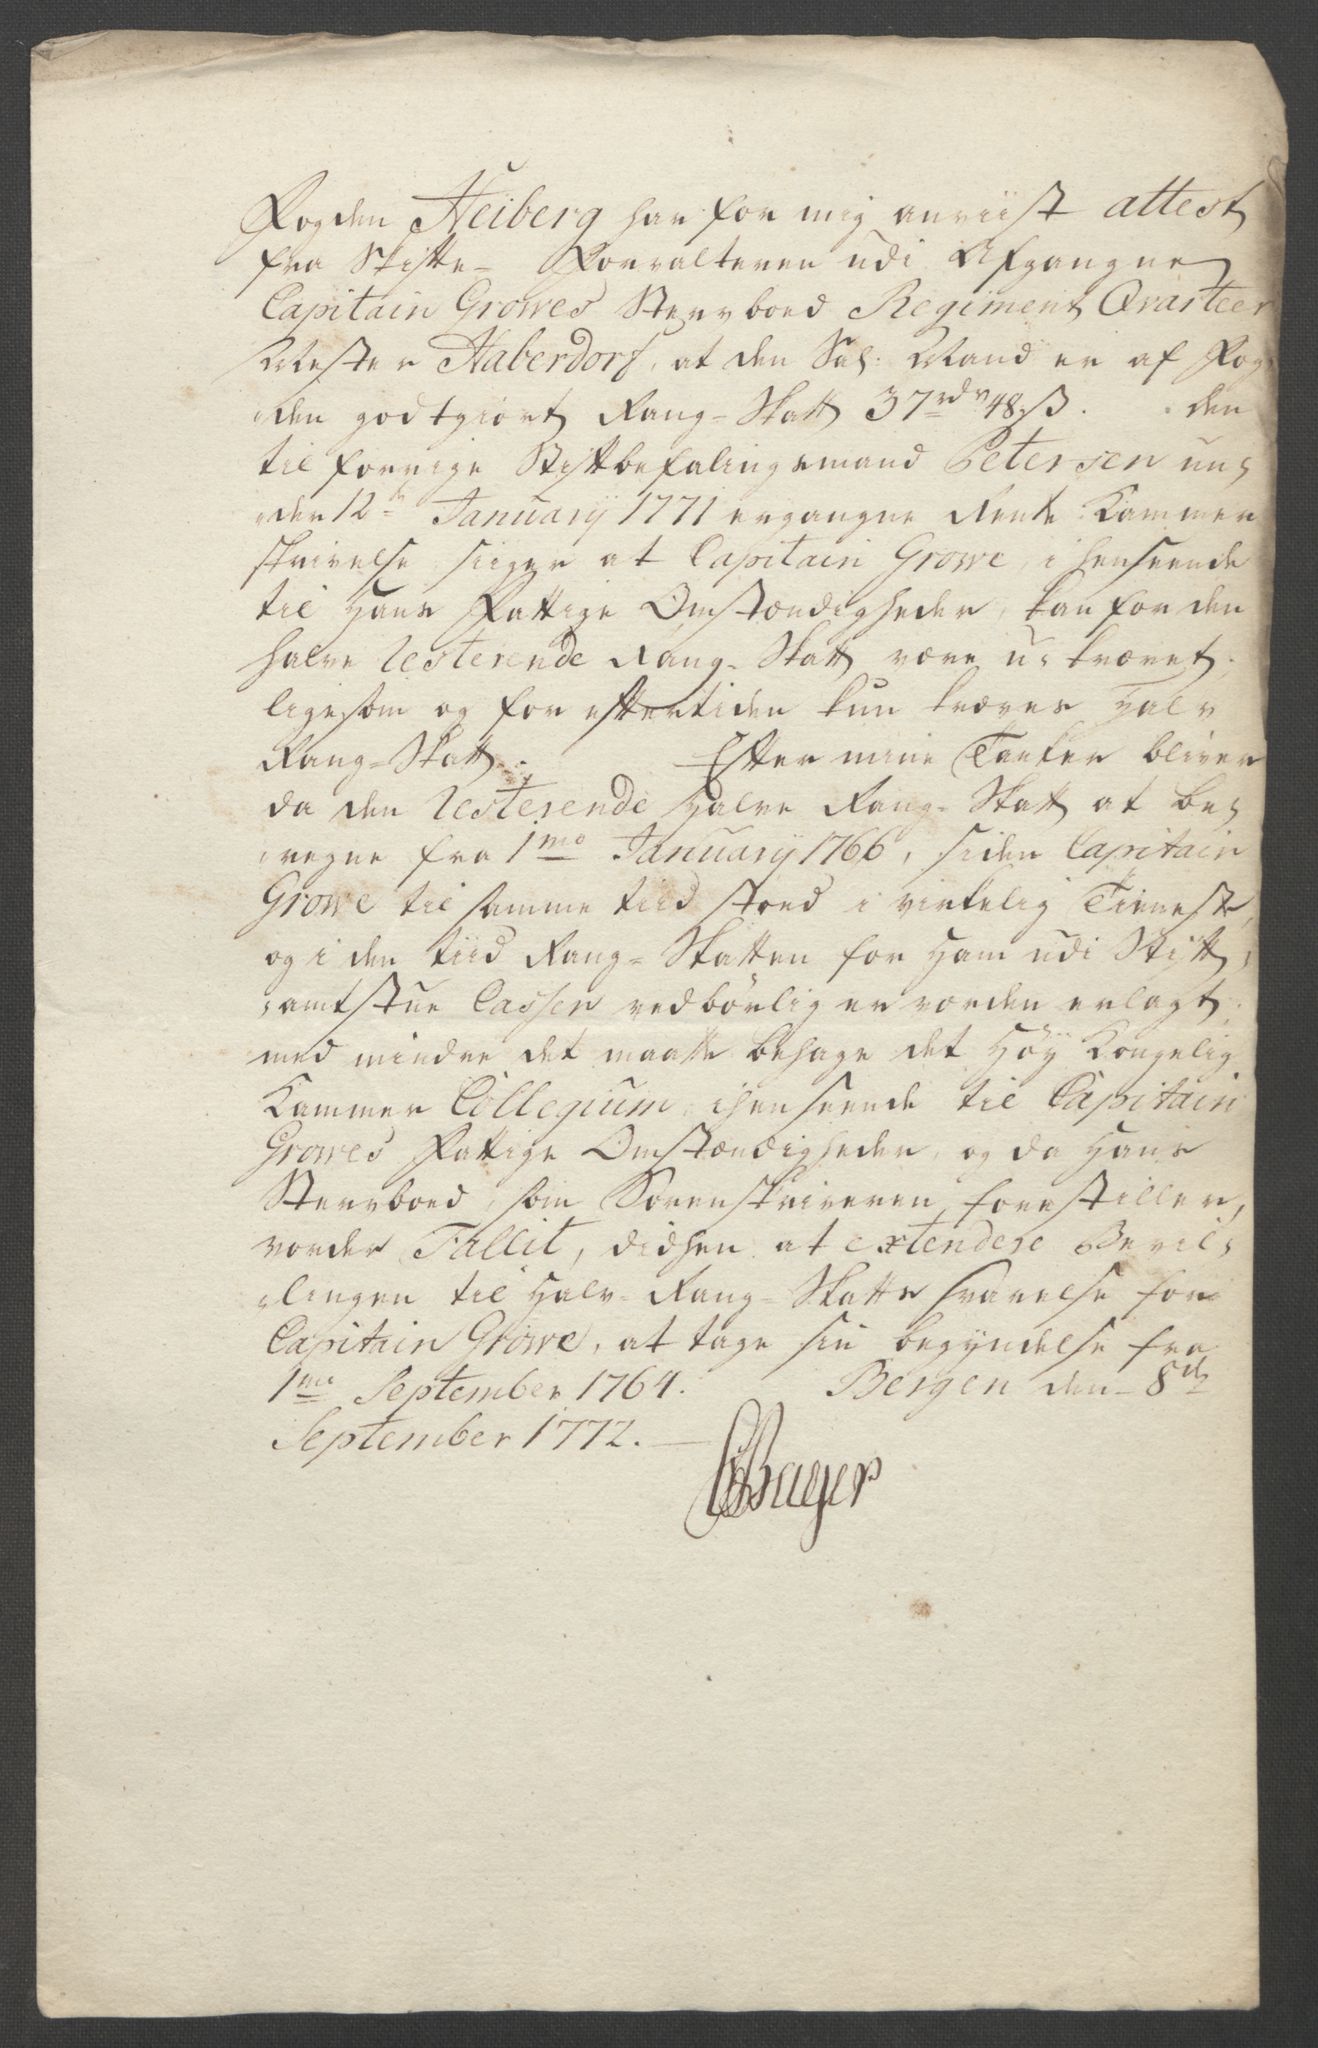 Fogden Heiberg har for mig anviist attest
fra Skifte- Forvalteren udi Afgangne
Capitain Growes Stervboed Regiment Qvarteer
Mester Haberdorf, at den Sal. Mand er af Fog
den godtgiort Rang-Skatt 37 rdr 48 ß. den
til forrige Stiftbefalingsmand Petersen un-
der 12te January 1771 ergangne Rente Kammer
skrivelse siger at Capitain Growe, i henseende
til Hans Fattige Omstændigheder, kan for den
halve resterende Rang-Skatt være u-krævet,
ligesom og for eftertiden kun kræves Halv
Rang-Skatt. Efter mine Tanker bliver
da den resterende Halve Rang-Skatt at be-
regne fra 1mo January 1766, siden Capitain
Growe til samme tiid stoed i virkelig Tieneste,
og i den tiid Rang-Skatten for Ham udi Stift-
amtstue Cassen vedbørlig er vorden erlagt;
med mindre det maatte behage det Høy Kongelig
Kammer Collegium, i henseende til Capitain
Growes Fattige Omstændigheder, og da Hans
Stervboed, som Sorenskriveren forestiller,
vorder Fallit, didhen at extendere Bevil-
lingen til Halv-Rang-Skatts svarelse for
Capitain Growe, at tage sin begyndelse fra
1mo September 1764. Bergen den 8de
September 1772.
Bager